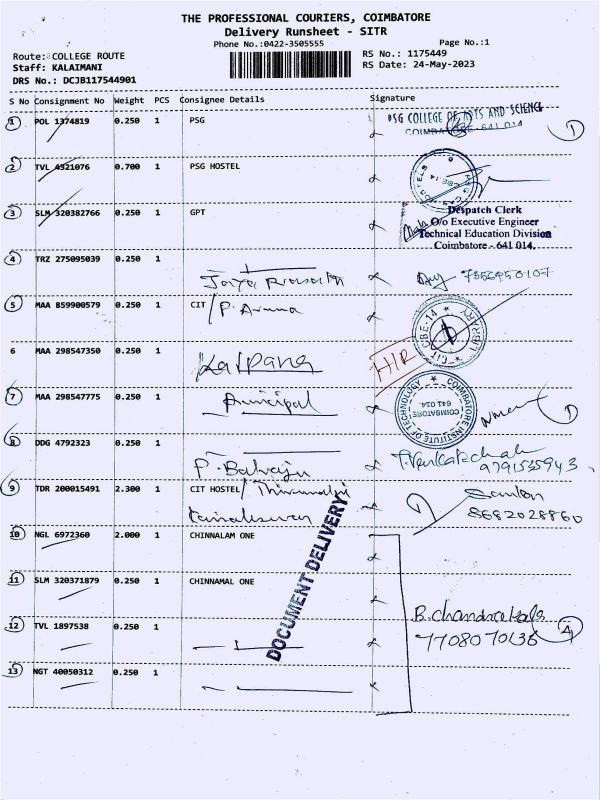 THE PROFESSIONAL COURIERS, COIMBATORE
Delivery Runsheet - SITR
Phone No.:0422-3505555
Page No.:1
Route: COLLEGE ROUTE
RS No.: 1175449
Staff: KALAIMANI
RS Date: 24-May-2023
DRS No.: DCJB117544901
S No Consignment No Weight PCS Consignee Details Signature
1 POL 1374819 0.250 1 PSG
PSG COLLEGE OF ARTS AND SCIENCE
COIMBATORE - 641 014
1
2 TVL 4321076 0.700 1 PSG HOSTEL
3 SLM 320382766 0.250 1 GPT
Despatch Clerk
O/o Executive Engineer
Technical Education Division
Coimbatore - 641 014.
4 TRZ 275095039 0.250 1
5 MAA 859900579 0.250 1 CIT / P. Aruna
CIT CBE-14
6 MAA 298547350 0.250 1 Kalpana
7 MAA 298547775 0.250 1 Principal
COIMBATORE INSTITUTE OF TECHNOLOGY
COIMBATORE
641 014
1
8 DDG 4792323 0.250 1
T. Venkatachalam
9791535943
9 TDR 200015491 2.300 1 CIT HOSTEL /
8682028860
10 NGL 6972360 2.000 1 CHINNALAM ONE
DOCUMENT DELIVERY
11 SLM 320371879 0.250 1 CHINNAMAL ONE
B. Chandrakala
7708070136
4
12 TVL 1897538 0.250 1
13 NGT 40050312 0.250 1